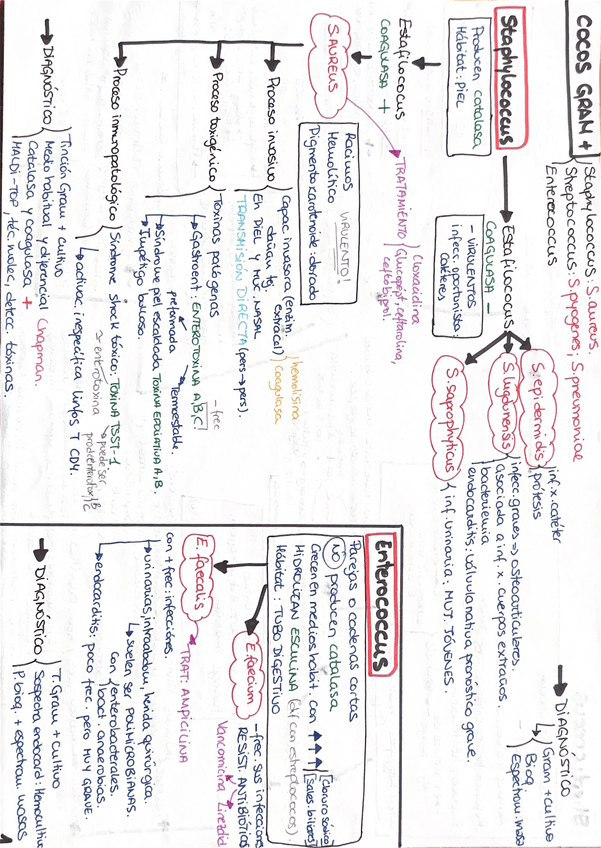 COCOS GRAM +
Staphylococcus: S. aureus.
Streptococcus: S. pyogenes; S. pneumoniae
Enterococcus
Staphylococcus
Producen catalasa
Hábitat: piel
Estafilococus
COAGULASA +
S. AUREUS
TRATAMIENTO
Cloxacidina
Glucopépt, ceftarolina,
ceftobiprol.
Racimos VIRULENTO!
Hemolítico
Pigmento carotenoide: dorado
Proceso invasivo
Capac. invasora (enzim.
extracel)
hemolisina
coagulasa
EN PIEL Y MUC. NASAL
TRANSMISIÓN DIRECTA (pers→pers).
Proceso toxigénico
Toxinas patógenas
Gastroent: ENTEROTOXINA A,B,C!
- frec
preformada
Termoestable.
Síndrome piel escaldada: TOXINA EPOLIATIVA A,B.
Impétigo bulloso.
Proceso inmunopatológico
Síndrome shock tóxico: TOXINA TSST-1
enterotoxina
puede ser
B
C
activac. inespecífica linfos T CD4.
DIAGNÓSTICO
Tinción Gram + cultivo
Medio habitual y diferencial Chapman.
Catalasa y coagulasa +
MALDI-TOF, téc. molec, detecc. toxinas.
Estafilococus
COAGULASA −
- VIRULENTOS
infecc. oportunista:
catéteres
S. epidermidis
inf. x. catéter
prótesis
S. lugdunensis
infecc. graves => osteoarticulares.
asociada a inf. x. cuerpos extraños.
bacteriemia
endocarditis: válvula nativa pronóstico grave.
S. saprophyticus
inf. urinaria: MUJ. JÓVENES.
DIAGNÓSTICO
Gram + cultivo
Bioq
Espectrom. masa
Enterococcus
Parejas o cadenas cortas
NO producen catalasa
Crecen en medios habit. con
cloruro sódico
sales. biliares
HIDROLIZAN ESCULINA (dif con estreptococos).
Hábitat: TUBO DIGESTIVO
E. faecium
- frec. sus infecciones
RESIST. ANTIBIÓTICOS
Vancomicina Linezolid
E. faecalis
TRAT: AMPICILINA
con + frec: infecciones.
urinarias, intraabdom, herida quirúrgica.
suelen ser POLIMICROBIANAS.
con
enterobacterales.
bact. anaerobias.
endocarditis: poco frec. pero MUY GRAVE.
DIAGNÓSTICO
T. Gram + cultivo
Sospecha endocard: Hemocultivo
P. bioq. + espectrom masas
1